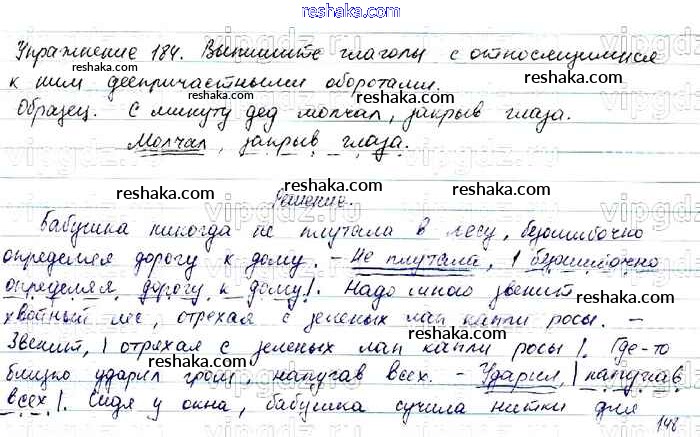 reshaka.com
Упражнение 184. Выпишите глаголы с относящимися
к ним деепричастными оборотами.
Образец. С минуту дед молчал, закрыв глаза.
Молчал, закрыв глаза.
Решение.
Бабушка никогда не плутала в лесу, безошибочно
определяя дорогу к дому. - Не плутала, | безошибочно
определяя дорогу к дому|. Надо мною звенит
хвойный лес, отряхая с зеленых лап капли росы. -
Звенит, | отряхая с зеленых лап капли росы |. Где-то
близко ударил гром, напугав всех. - Ударил, | напугав
всех |. Сидя у окна, бабушка сучила нитки для
148